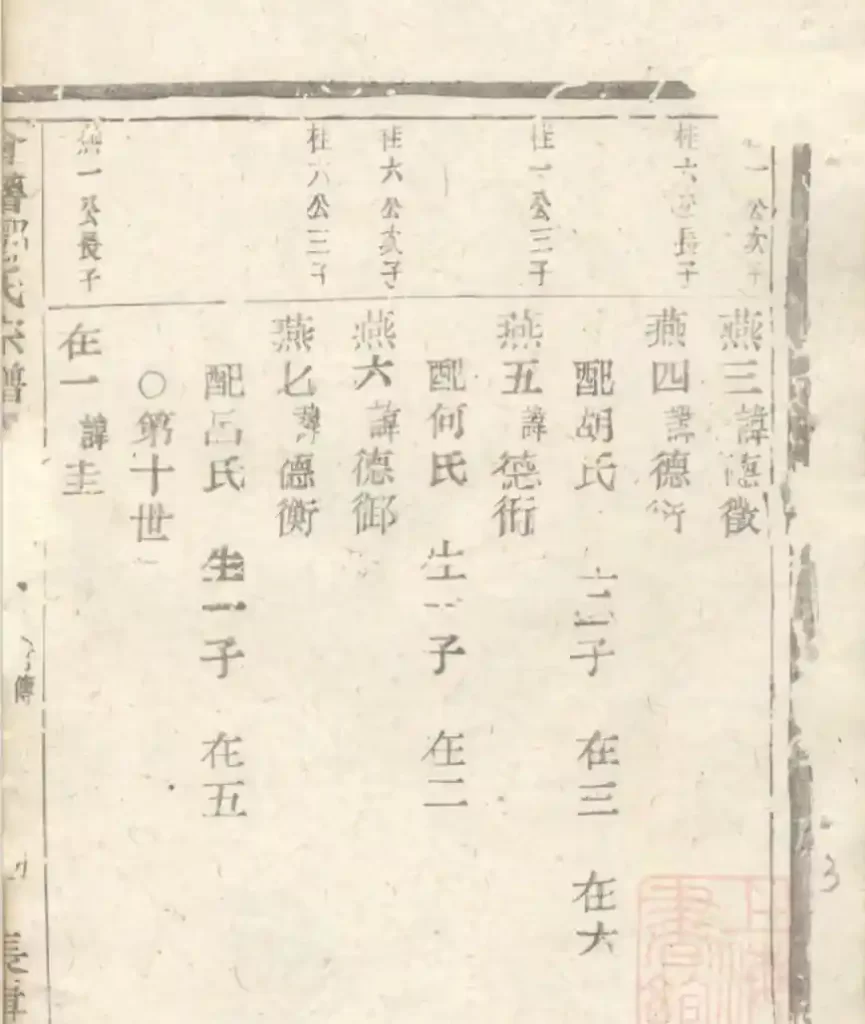 一公次子
燕三諱德徵
桂六公長子
燕四諱德衍
配胡氏 二子 在三 在六
桂一公三子
燕五諱德衎
配何氏 生一子 在二
桂六公次子
燕六諱德御
桂六公三子
燕七諱德衡
配呂氏 生一子 在五
○第十世
燕一公長子
在一諱圭
氏宗譜
傳
長
書館
3